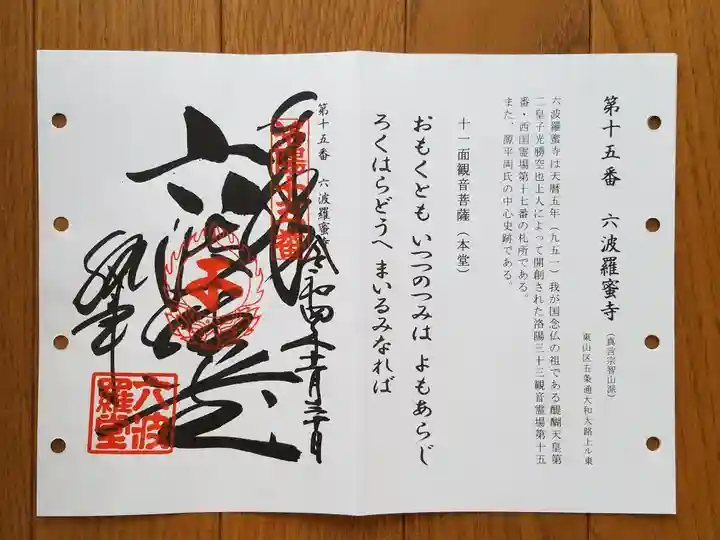 第十五番 六波羅蜜寺
(真言宗智山派)
東山区五条通大和大路上ル東
六波羅蜜寺は天暦五年(九五一)我が国念仏の祖である醍醐天皇第
二皇子光勝空也上人によって開創された洛陽三十三観音霊場第十五
番・西国霊場第十七番の札所である。
また、源平両氏の中心史跡である。
十一面観音菩薩(本堂)
おもくとも いつつのつみは よもあらじ
ろくはらどうへ まいるみなれば
第十五番 六波羅蜜寺
奉拝
令和四年十二月三十日
六波羅堂